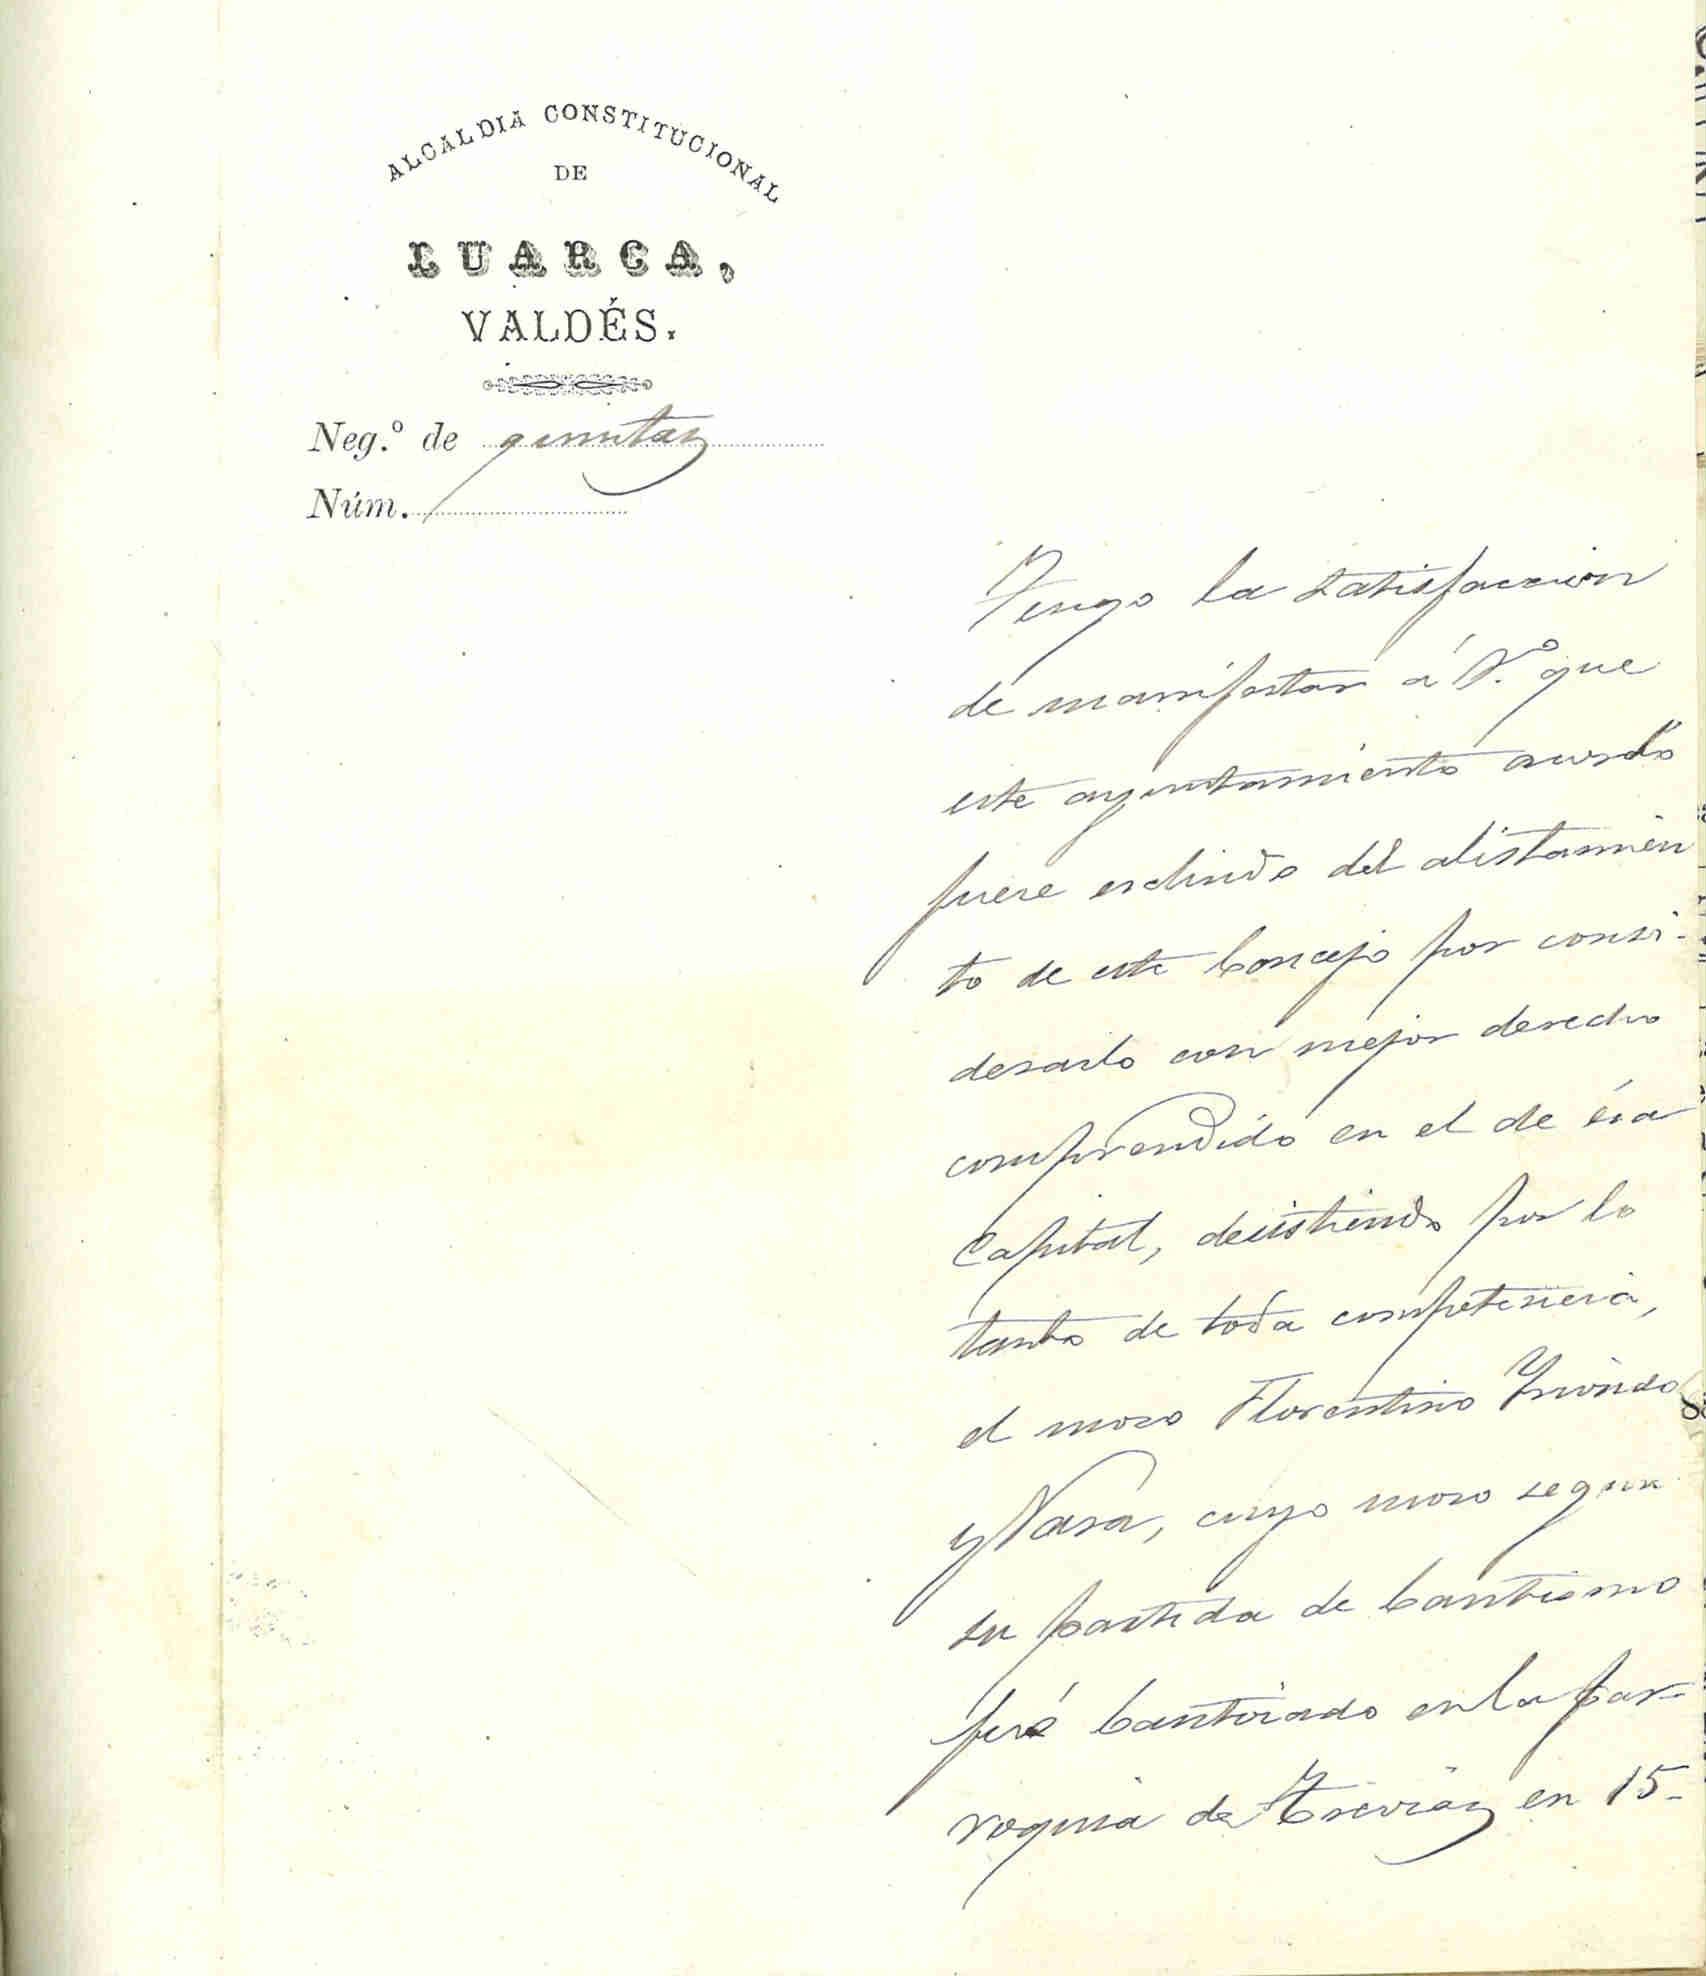 ALCALDIA CONSTITUCIONAL
DE
LUARCA,
VALDÉS.
Neg.º de quintas
Núm.
Tengo la satisfaccion
de manifestar á V.º que
este ayuntamiento acordó
fuese escluido del alistamien
to de este Concejo por consi-
derarlo con mejor derecho
comprendido en el de esa
Capital, desistiendo por lo
tanto de toda competencia,
el mozo Florentino
y Vasa, cuyo mozo segun
su partida de bautismo
fué bautizado en la par-
roquia de Trevías en 15-